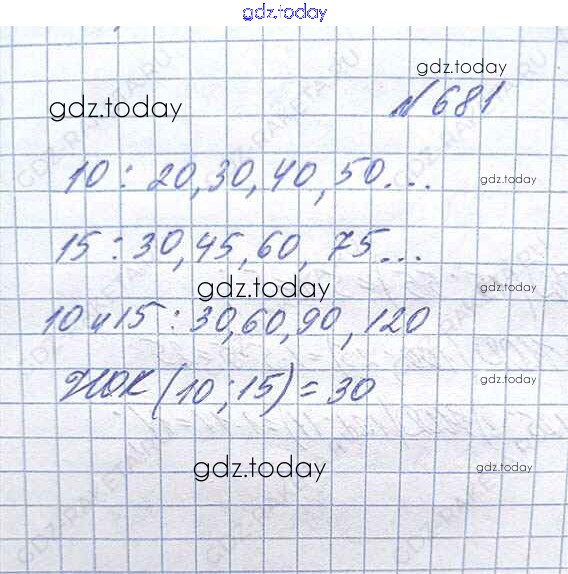 gdz.today
gdz.today
gdz.today
№681
10: 20, 30, 40, 50...
gdz.today
15: 30, 45, 60, 75...
gdz.today
gdz.today
10 и 15: 30, 60, 90, 120
НОК (10; 15) = 30
gdz.today
gdz.today
gdz.today